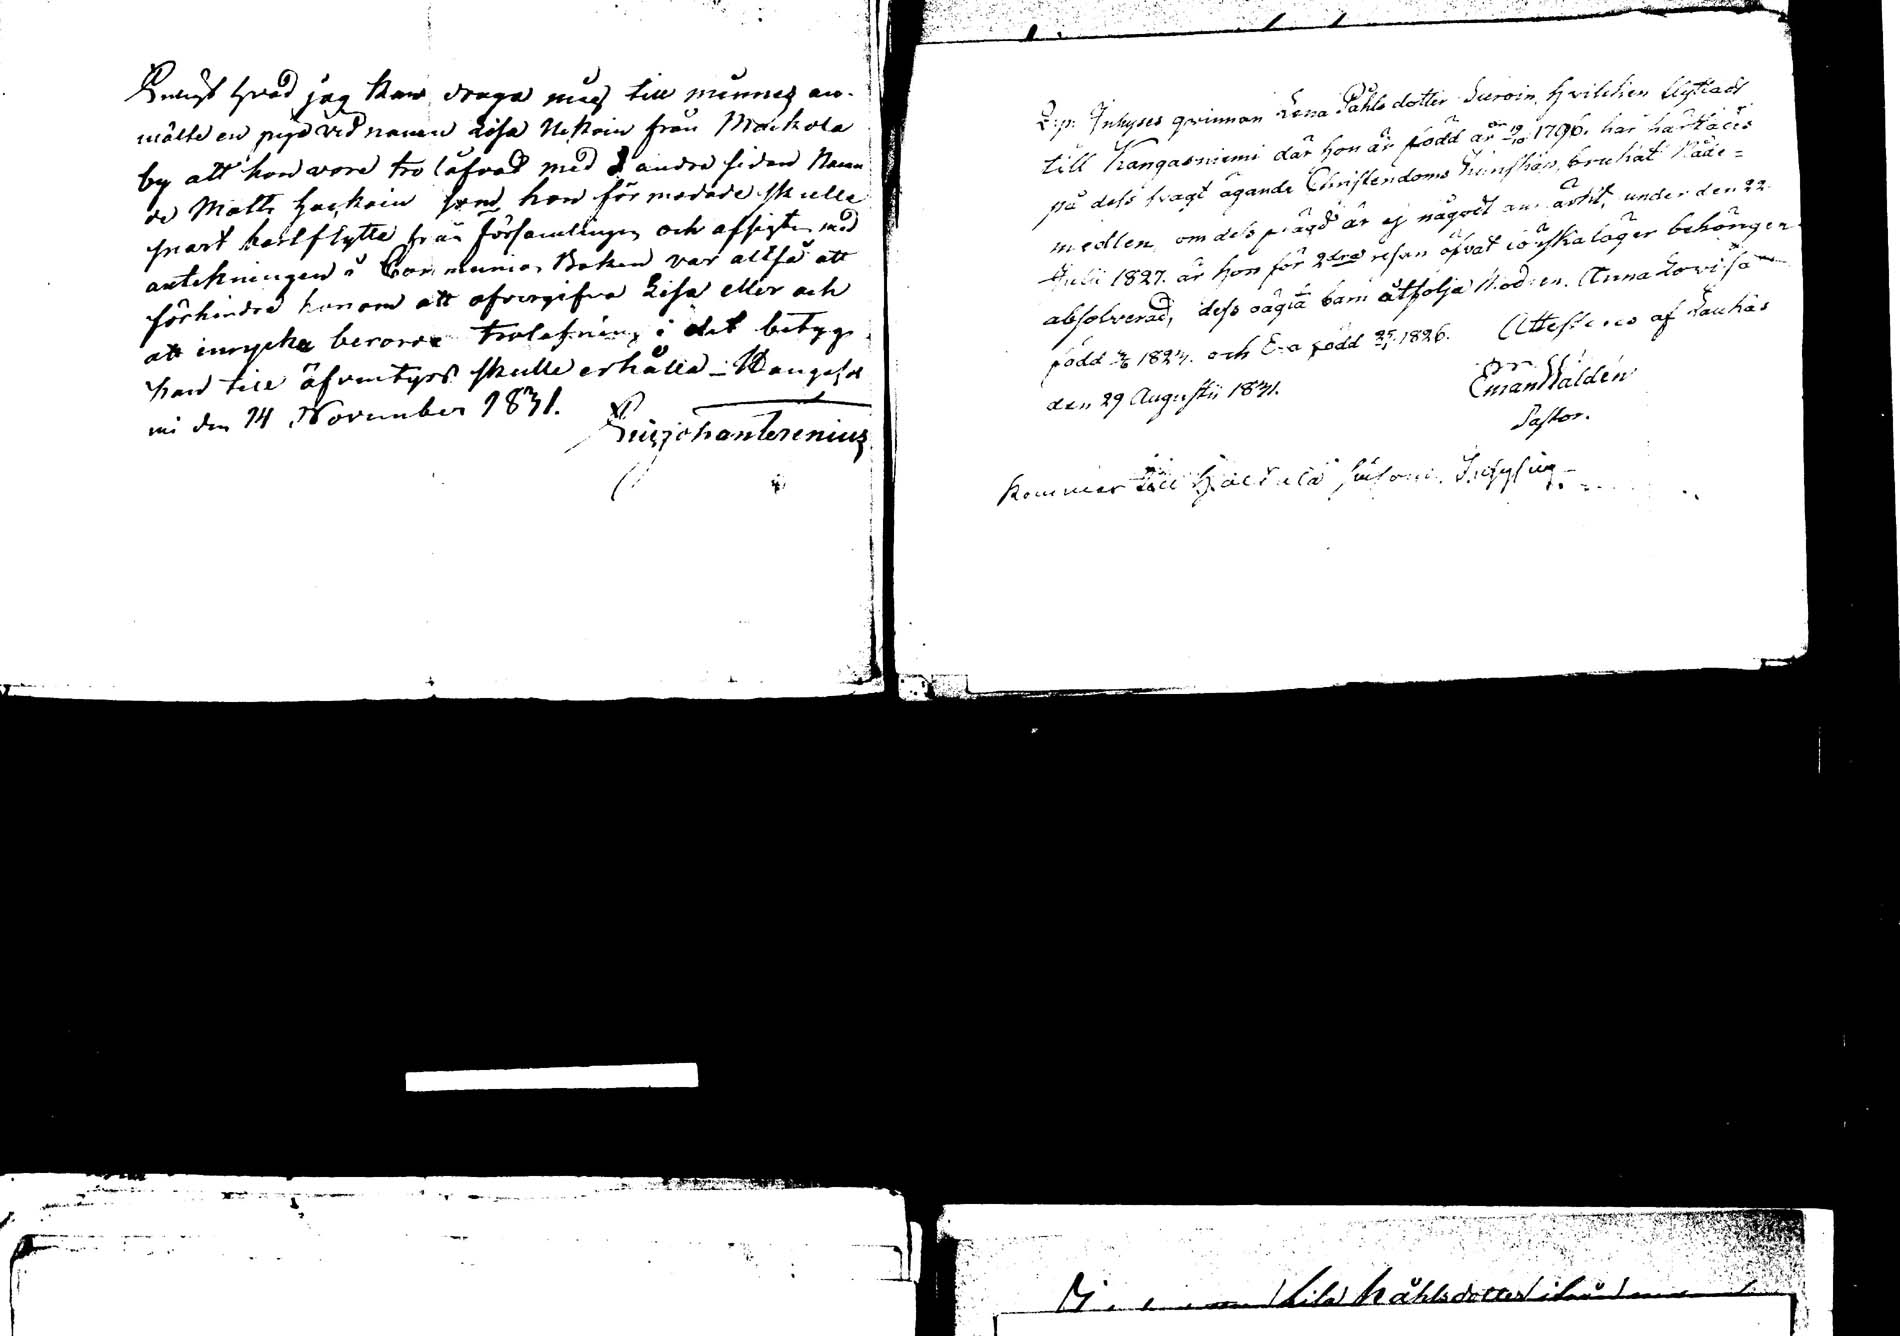 Enligt hvad jag kan draga mig till minnes an-
mälte en piga vid namn Lisa Ukkoin från Mackola
by att hon vore trolåfvad med å andra sidan namn
de Matts Hackoin som hon förmodade skulle
snart bortflytta från församlingen och afsigten med
antekningen i Communion Boken var altså att
förhindra honom att öfvergifva Lisa eller och
att inrycka berörde trolofning i det betyg
han till äfventyrs skulle erhålla – Kangasni
mi den 14 November 1831.
Gust Johan Terenius
L: p: Inhyses qvinnan Lena Påhls dotter Suroin, hvilcken flyttadt
till Kangasniemi där hon är född år 19/10 1796. har härstädes
på dess svagt ägande Christendoms kunskap, brukat Nåde-
medlen, om dess frägd är ej någodt anmärkt, under den 22
Julii 1827. är hon för 2dra resan öfvat lönskaläger behörigen
absolverad, dess oägta barn åtfölja Modren, Anna Lovisa
född 1824. och Eva född 1826. Attesteres af Laukas
den 29 Augustii 1831.
Eman Waldén
Pastor.
Kommer till Inhysing
Påhlsdotter